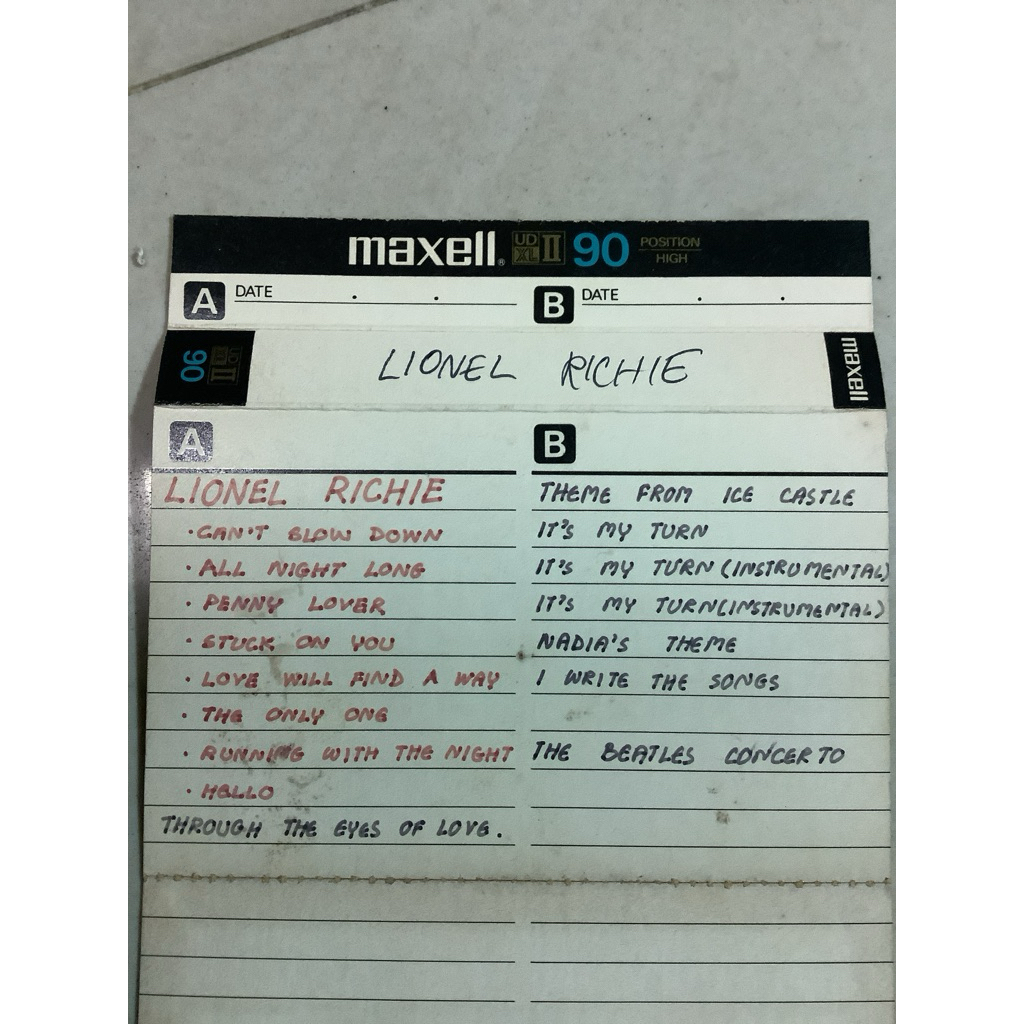 maxell® UD XL II 90 POSITION HIGH
A DATE . . B DATE . .
90 UD XL II LIONEL RICHIE maxell
A
LIONEL RICHIE
· CAN'T SLOW DOWN
· ALL NIGHT LONG
· PENNY LOVER
· STUCK ON YOU
· LOVE WILL FIND A WAY
· THE ONLY ONE
· RUNNING WITH THE NIGHT
· HELLO
THROUGH THE EYES OF LOVE.
B
THEME FROM ICE CASTLE
IT'S MY TURN
IT'S MY TURN (INSTRUMENTAL)
IT'S MY TURN (INSTRUMENTAL)
NADIA'S THEME
I WRITE THE SONGS
THE BEATLES CONCERTO